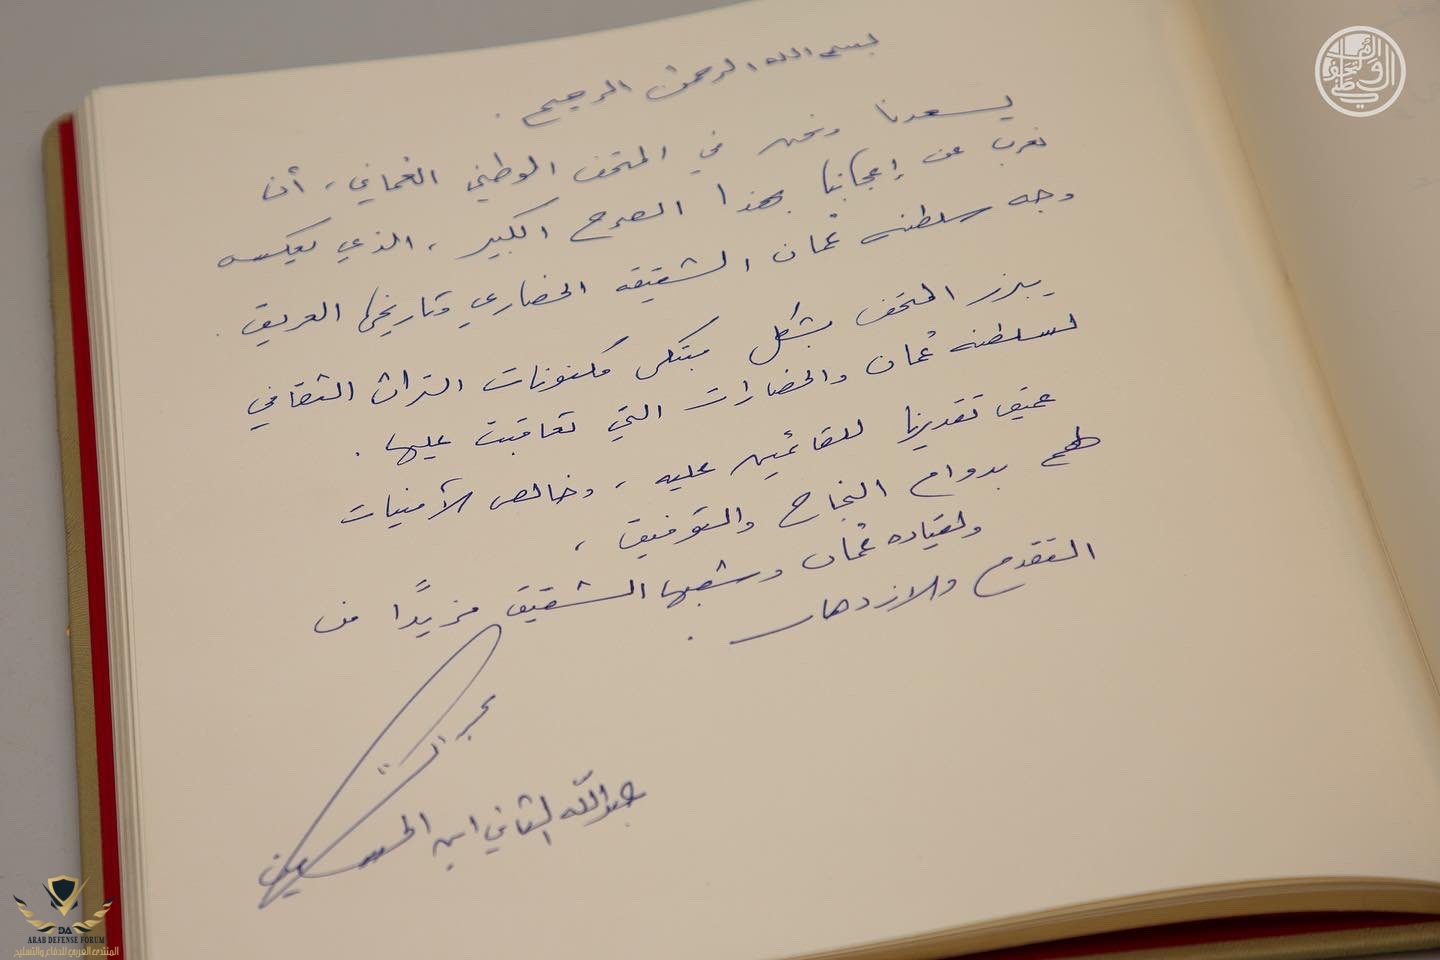 بسم الله الرحمن الرحيم .
يسعدنا ونحن في المتحف الوطني العُماني ، أن
نعرب عن إعجابنا بهذا الصرح الكبير ، الذي يعكس
وجه سلطنه عُمان الشقيقه الحضاري وتاريخها العريق .
يبرز المتحف بشكل مبتكر مكنونات التراث الثقافي
لسلطنه عُمان والحضارات التي تعاقبت عليها .
عميق تقديرنا للقائمين عليه ، وخالص الأمنيات
لهم بدوام النجاح والتوفيق ،
ولقياده عُمان وشعبها الشقيق مزيدًا من
التقدم والازدهار .
عبدالله الثاني ابن الحسين
المتحف الوطني
DA
ARAB DEFENSE FORUM
المنتدى العربي للدفاع والتسليح